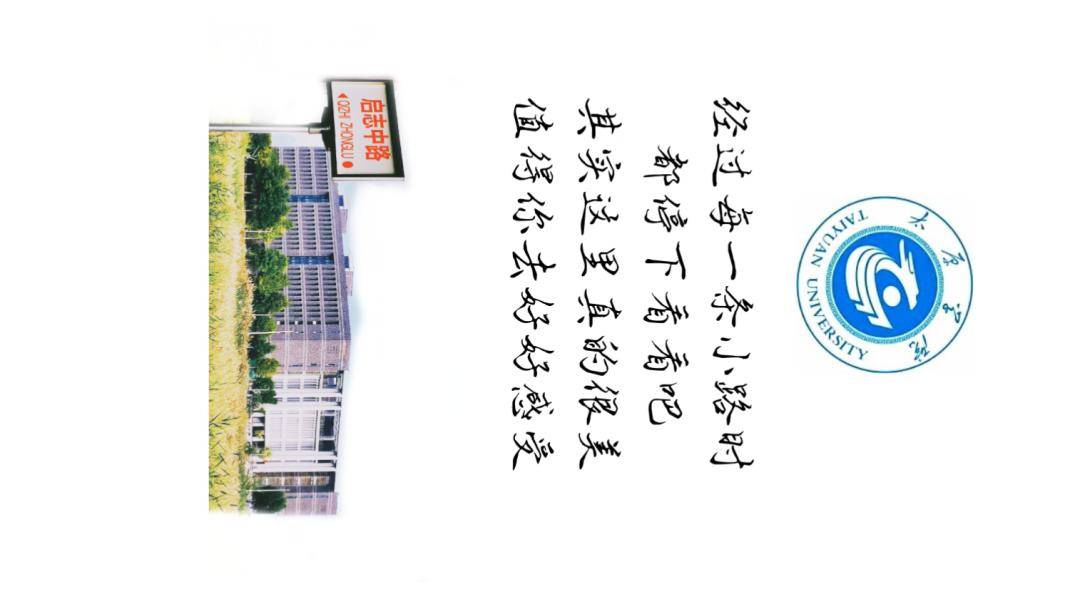 太原学院
TAIYUAN UNIVERSITY
经过每一条小路时
都停下看看吧
其实这里真的很美
值得你去好好感受
启志中路
QIZHI ZHONGLU